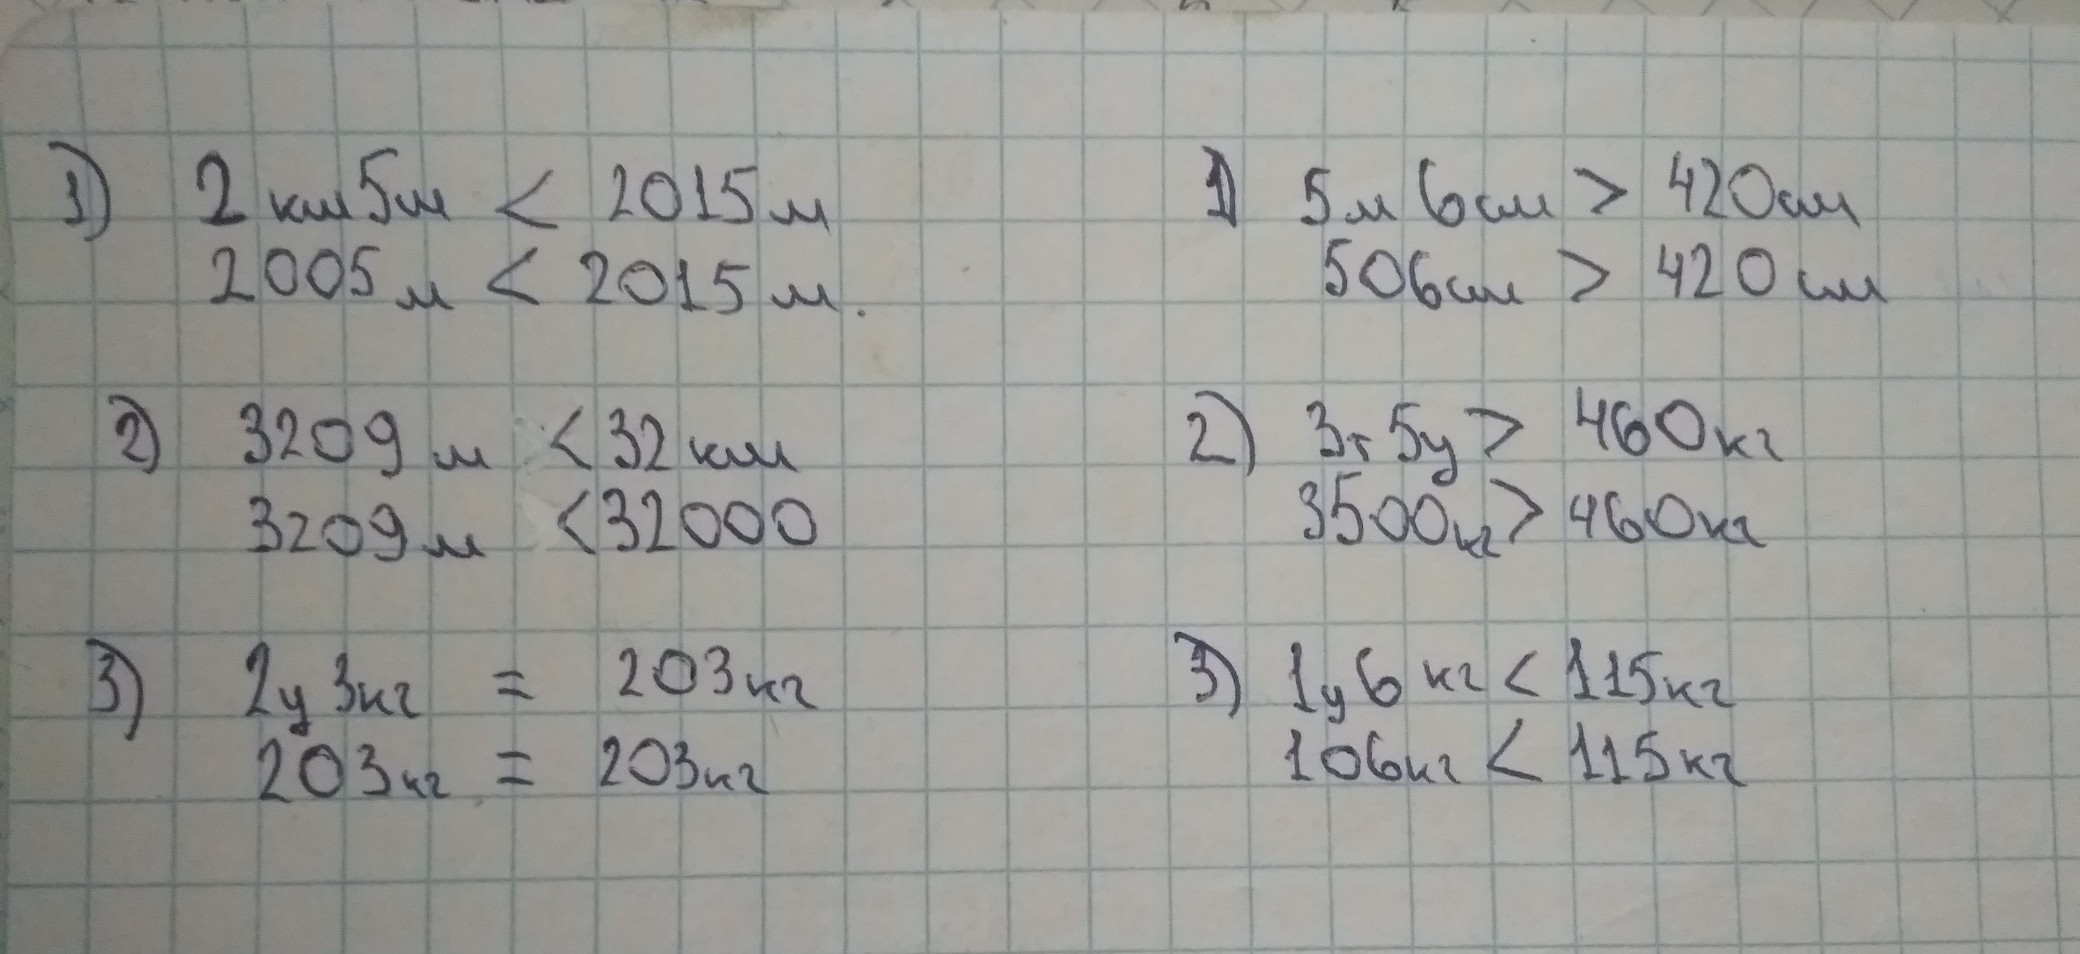 1) 2 км 5 м < 2015 м
2005 м < 2015 м.
2) 3209 м < 32 км
3209 м < 32000
3) 2ц 3кг = 203кг
203кг = 203кг
1) 5 м 6 см > 420 см
506 см > 420 см
2) 3т 5ц > 460кг
3500кг > 460кг
3) 1ц 6 кг < 115кг
106кг < 115кг